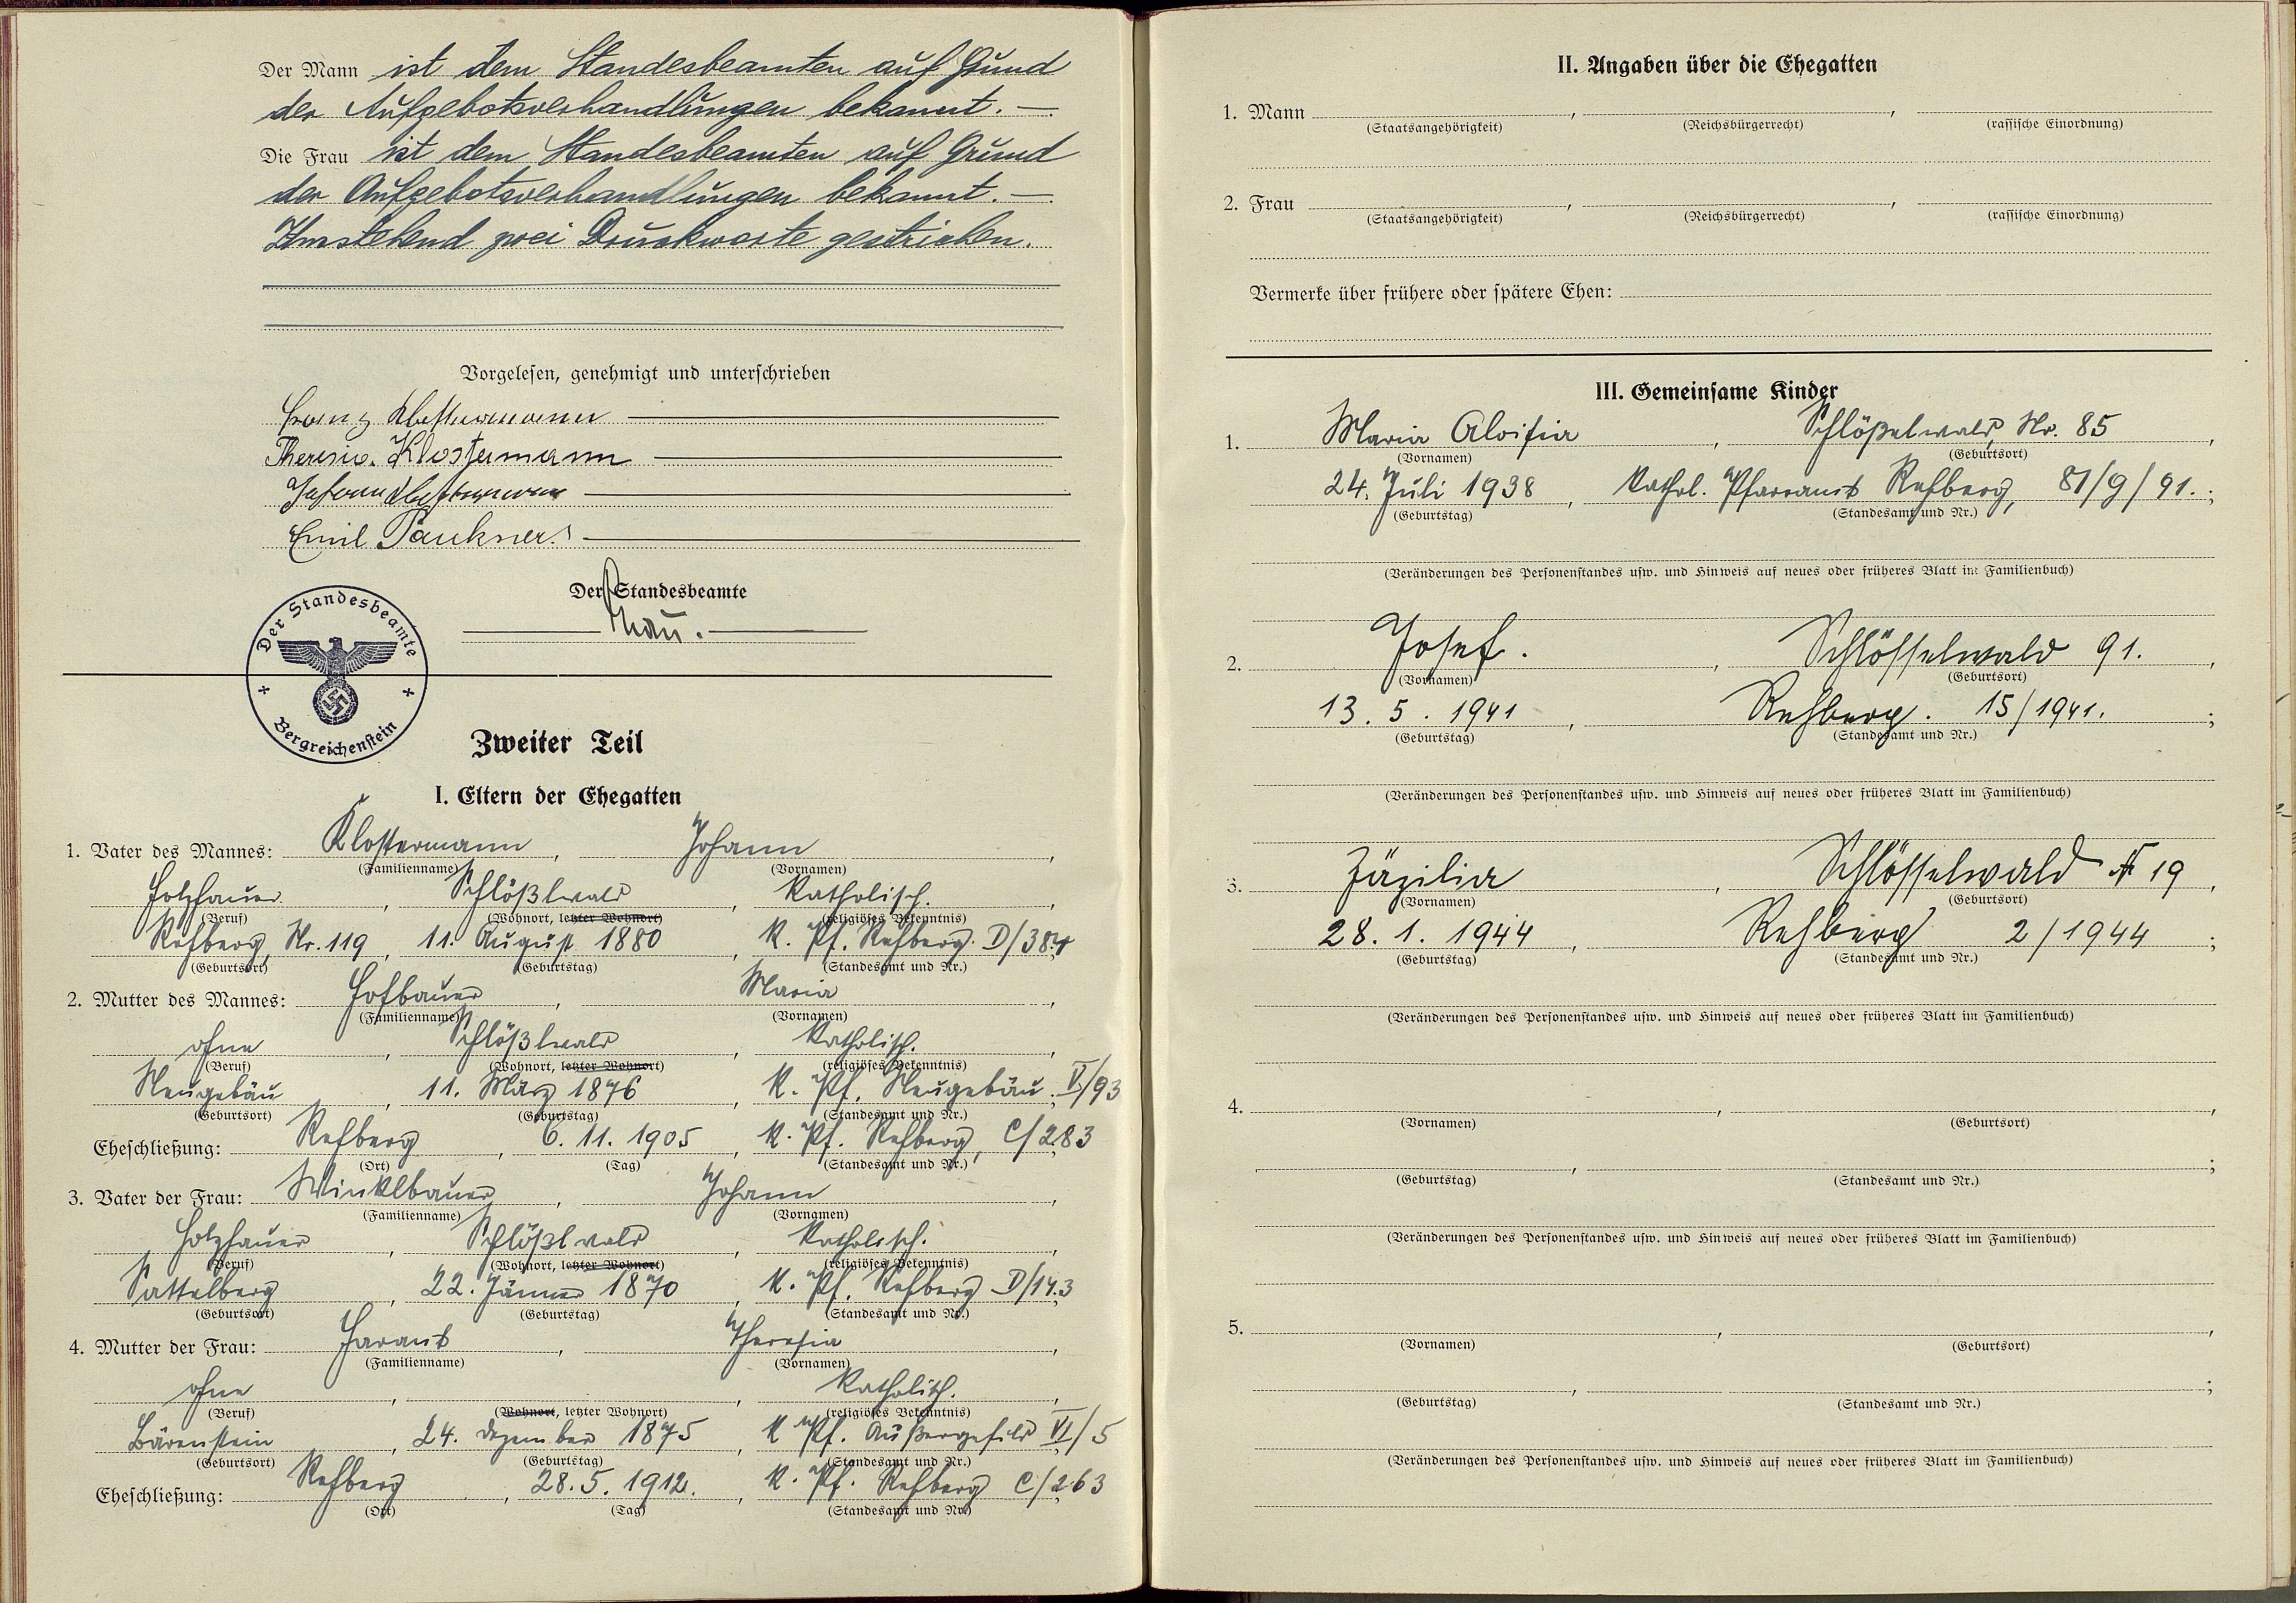 Der Mann ist dem Standesbeamten auf Grund
der Aufgebotsverhandlungen bekannt. —
Die Frau ist dem Standesbeamten auf Grund
der Aufgebotsverhandlungen bekannt. —
Umstehend zwei Druckworte gestrichen.
Vorgelesen, genehmigt und unterschrieben
Franz Klostermann
Theresia Klostermann
Johann Klostermann
Emil Paukner
Der Standesbeamte
Der Standesbeamte
Bergreichenstein
Zweiter Teil
I. Eltern der Ehegatten
1. Vater des Mannes: Klostermann, Johann,
(Familienname) (Vornamen)
Holzhauer, Schlößlwald, Katholisch.,
(Beruf) (Wohnort, letzter Wohnort) (religiöses Bekenntnis)
Rehberg, Nr. 119, 11. August 1880, K. Pf. Rehberg. D/384
(Geburtsort) (Geburtstag) (Standesamt und Nr.)
2. Mutter des Mannes: Hofbauer, Maria,
(Familienname) (Vornamen)
ohne, Schlößlwald, Katholisch.,
(Beruf) (Wohnort, letzter Wohnort) (religiöses Bekenntnis)
Neugebäu, 11. März 1876, K. Pf. Neugebäu. V/93
(Geburtsort) (Geburtstag) (Standesamt und Nr.)
Eheschließung: Rehberg, 6. 11. 1905, K. Pf. Rehberg, C/283
(Ort) (Tag) (Standesamt und Nr.)
3. Vater der Frau: Winklbauer, Johann,
(Familienname) (Vornamen)
Holzhauer, Schlößlwald, Katholisch.,
(Beruf) (Wohnort, letzter Wohnort) (religiöses Bekenntnis)
Sattelberg, 22. Jänner 1870, K. Pf. Rehberg D/143
(Geburtsort) (Geburtstag) (Standesamt und Nr.)
4. Mutter der Frau: Harant, Theresia,
(Familienname) (Vornamen)
ohne, , Katholisch.,
(Beruf) (Wohnort, letzter Wohnort) (religiöses Bekenntnis)
Bärenstein, 24. Dezember 1875, K Pf. Außergefild VI/5
(Geburtsort) (Geburtstag) (Standesamt und Nr.)
Eheschließung: Rehberg, 28. 5. 1912., K. Pf. Rehberg C/263
(Ort) (Tag) (Standesamt und Nr.)
II. Angaben über die Ehegatten
1. Mann , ,
(Staatsangehörigkeit) (Reichsbürgerrecht) (rassische Einordnung)
2. Frau , ,
(Staatsangehörigkeit) (Reichsbürgerrecht) (rassische Einordnung)
Vermerke über frühere oder spätere Ehen:
III. Gemeinsame Kinder
1. Maria Aloisia, Schlößelwald, Nr. 85,
(Vornamen) (Geburtsort)
24. Juli 1938, Kathol. Pfarramt Rehberg, 81/9/91.;
(Geburtstag) (Standesamt und Nr.)
(Veränderungen des Personenstandes usw. und Hinweis auf neues oder früheres Blatt im Familienbuch)
2. Josef., Schlösselwald 91.,
(Vornamen) (Geburtsort)
13. 5. 1941, Rehberg. 15/1941.;
(Geburtstag) (Standesamt und Nr.)
(Veränderungen des Personenstandes usw. und Hinweis auf neues oder früheres Blatt im Familienbuch)
3. Zäzilia, Schlösselwald № 19,
(Vornamen) (Geburtsort)
28. 1. 1944, Rehberg 2/1944;
(Geburtstag) (Standesamt und Nr.)
(Veränderungen des Personenstandes usw. und Hinweis auf neues oder früheres Blatt im Familienbuch)
4. , ,
(Vornamen) (Geburtsort)
, ;
(Geburtstag) (Standesamt und Nr.)
(Veränderungen des Personenstandes usw. und Hinweis auf neues oder früheres Blatt im Familienbuch)
5. , ,
(Vornamen) (Geburtsort)
, ;
(Geburtstag) (Standesamt und Nr.)
(Veränderungen des Personenstandes usw. und Hinweis auf neues oder früheres Blatt im Familienbuch)